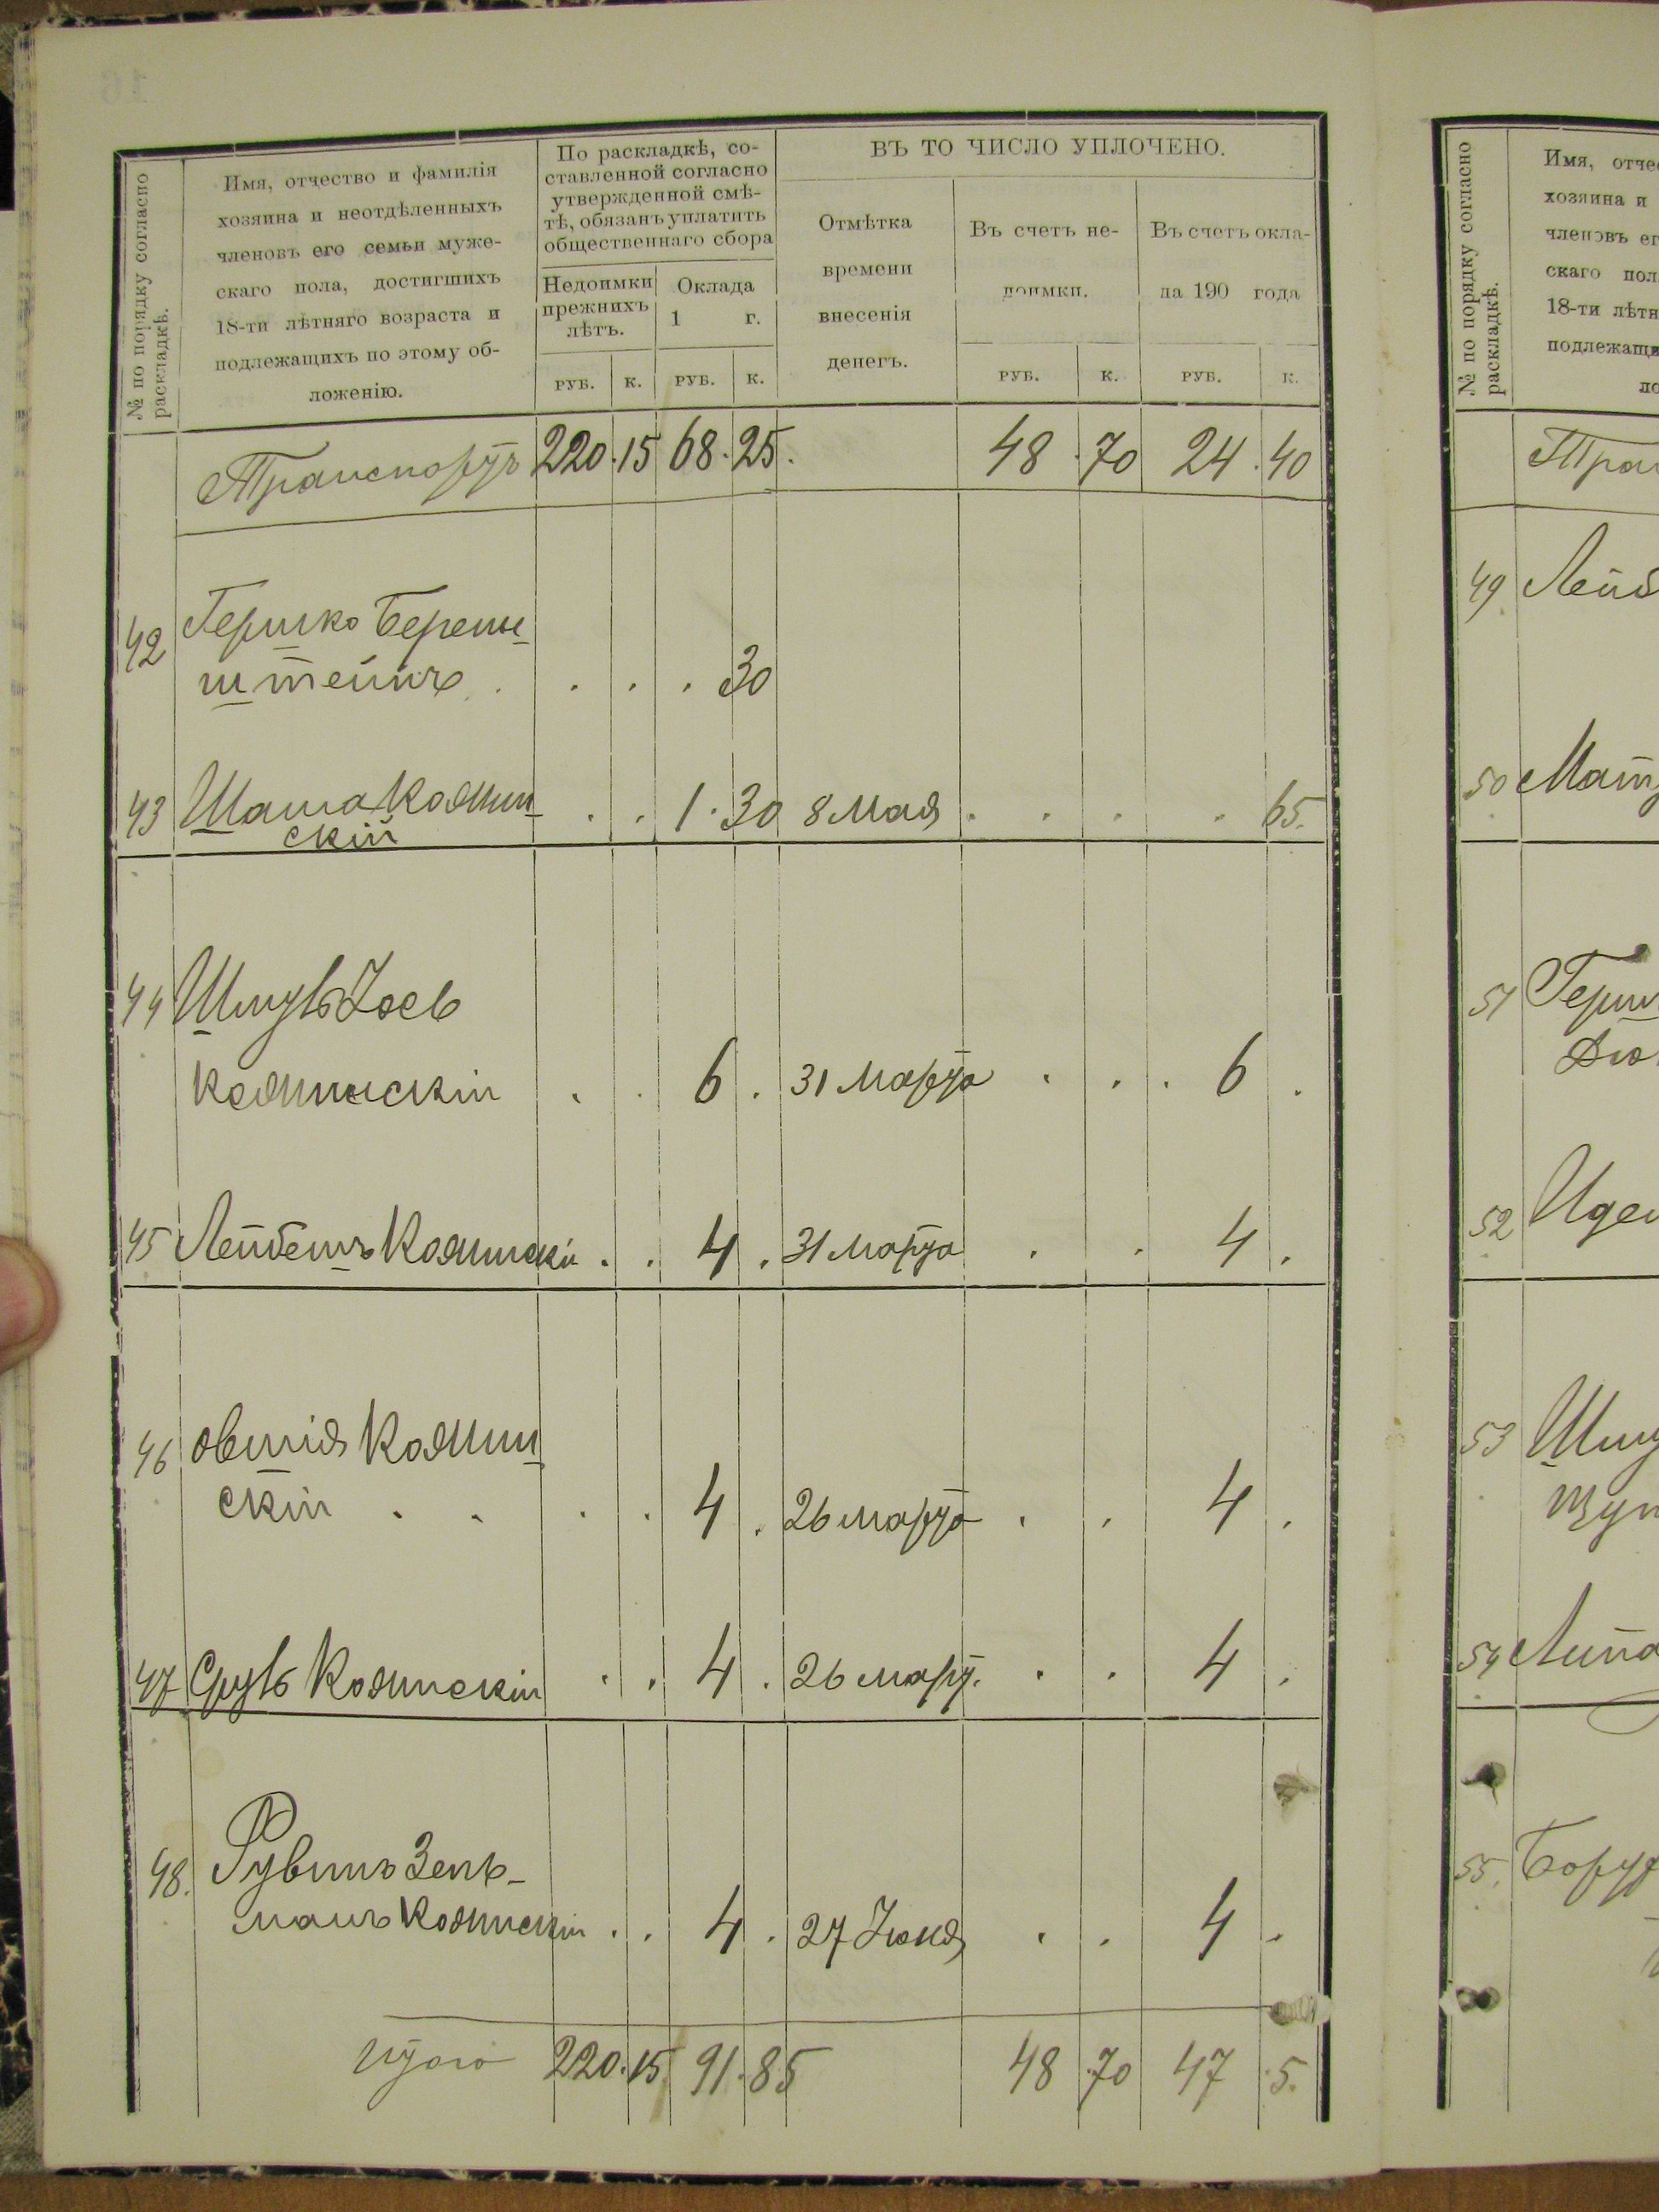 № по порядку согласно раскладкѣ.
Имя, отчество и фамилія
хозяина и неотдѣленныхъ
членовъ его семьи муже-
скаго пола, достигшихъ
18-ти лѣтняго возраста и
подлежащихъ по этому об-
ложенію.
По раскладкѣ, со-
ставленной согласно
утвержденной смѣ-
тѣ, обязанъ уплатить
общественнаго сбора
Недоимки прежнихъ лѣтъ.
Оклада 1 г.
РУБ. К. РУБ. К.
ВЪ ТО ЧИСЛО УПЛОЧЕНО.
Отмѣтка
времени
внесенія
денегъ.
Въ счетъ не-
доимки.
Въ счетъ окла-
да 190 года
РУБ. К. РУБ. К.
Транспортъ 220 15 68 25 48 70 24 40
42 Гершко Берень
штейнъ . . . . 30
43 Шая Колин
скій . . 1 30 8 Мая . . . . 65
44 Шмуль Іось
Колинскій . . 6 . 31 Марта . . . 6 .
45 Лейбешъ . . 4 . 31 Марта . . 4 .
46 Овшія Колин
скій . . . . 4 . 26 марта . . 4 .
47 Сруль Колинскій . . 4 . 26 март. . . 4 .
48. Рувинъ Зель-
манъ Колинскій . . 4 . 27 Іюня . . 4 .
Итого 220 15 91 85 48 70 47 5
№ по порядку согласно раскладкѣ.
Имя,
хозяина и
членовъ
скаго
18-ти
49
50
51
52
53
54
55